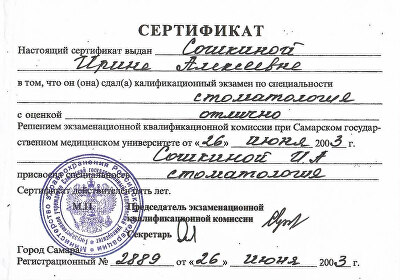 СЕРТИФИКАТ
Настоящий сертификат выдан Сошкиной
Ирине Алексеевне
в том, что он (она) сдал(а) калификационный экзамен по специальности
стоматология
с оценкой отлично
Решением экзаменационной квалификационной комиссии при Самарском государ-
ственном медицинском университете от «26» июня 2003 г.
Сошкиной ИА
присвоена специальность стоматология
Сертификат действителен пять лет.
М.П. Председатель экзаменационной
квалификационной комиссии
Секретарь
Город Самара
Регистрационный № 2889 «26» июня 2003 г.